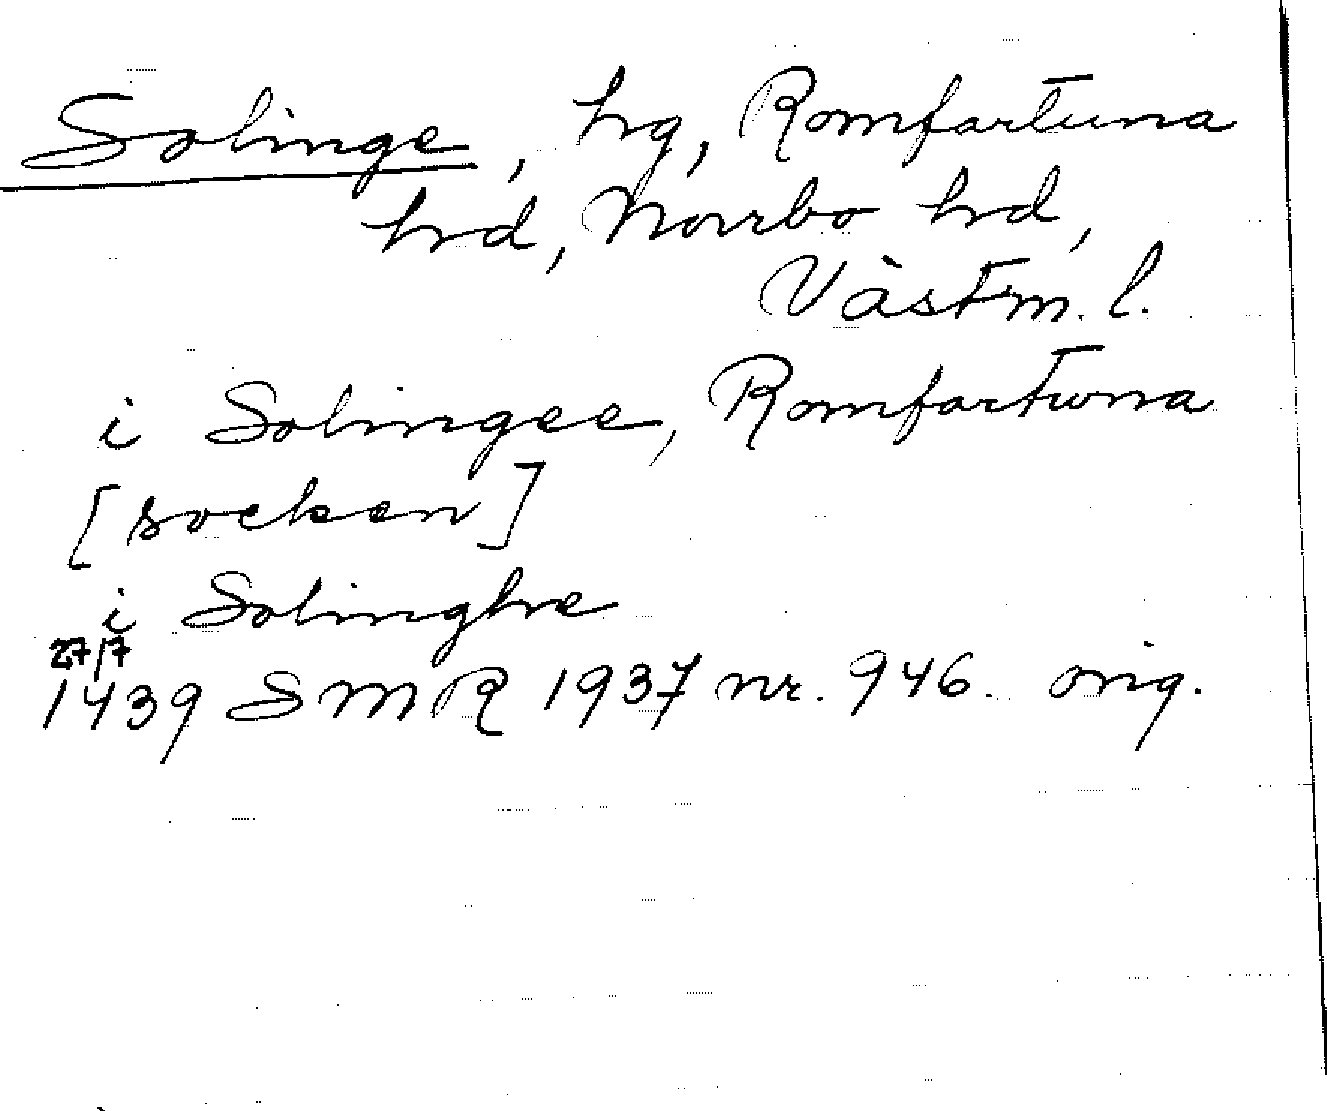 Solinge, hg, Romfartuna
hrd, Norrbo hrd,
Västm. l.
i Solingee, Romfartuna
[socken]
i Solinghe
27/7
1439 SMR 1937 nr. 946. orig.